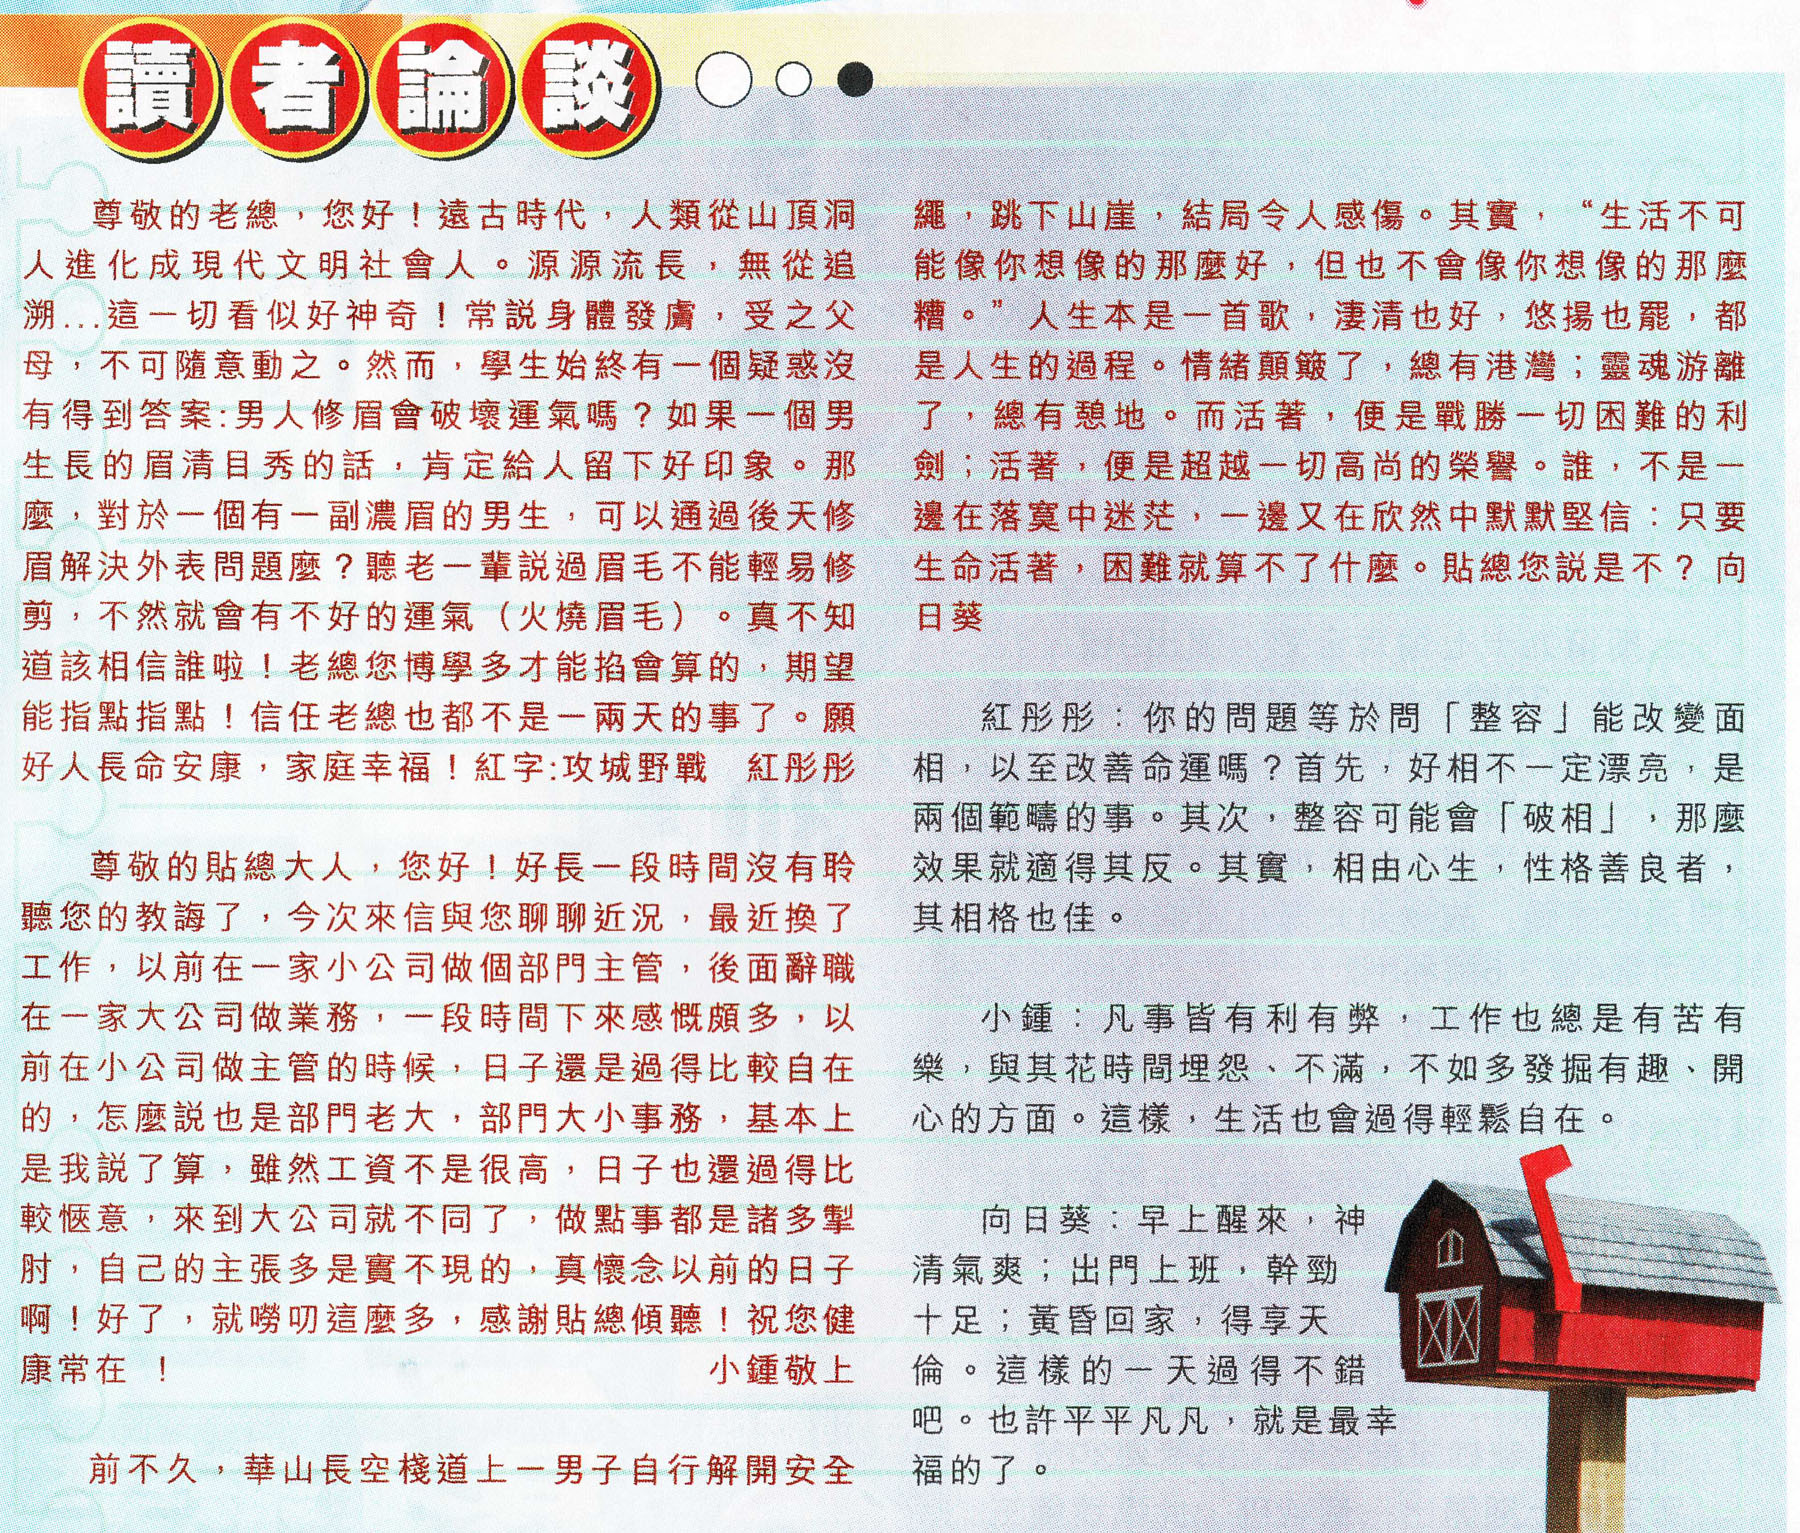 讀者論談
尊敬的老總，您好！遠古時代，人類從山頂洞
人進化成現代文明社會人。源源流長，無從追
溯...這一切看似好神奇！常説身體發膚，受之父
母，不可隨意動之。然而，學生始終有一個疑惑沒
有得到答案:男人修眉會破壞運氣嗎？如果一個男
生長的眉清目秀的話，肯定給人留下好印象。那
麼，對於一個有一副濃眉的男生，可以通過後天修
眉解決外表問題麼？聽老一輩説過眉毛不能輕易修
剪，不然就會有不好的運氣（火燒眉毛）。真不知
道該相信誰啦！老總您博學多才能掐會算的，期望
能指點指點！信任老總也都不是一兩天的事了。願
好人長命安康，家庭幸福！紅字:攻城野戰　紅彤彤
尊敬的貼總大人，您好！好長一段時間沒有聆
聽您的教誨了，今次來信與您聊聊近況，最近換了
工作，以前在一家小公司做個部門主管，後面辭職
在一家大公司做業務，一段時間下來感慨頗多，以
前在小公司做主管的時候，日子還是過得比較自在
的，怎麼説也是部門老大，部門大小事務，基本上
是我説了算，雖然工資不是很高，日子也還過得比
較愜意，來到大公司就不同了，做點事都是諸多掣
肘，自己的主張多是實不現的，真懷念以前的日子
啊！好了，就嘮叨這麼多，感謝貼總傾聽！祝您健
康常在 ！　小鍾敬上
前不久，華山長空棧道上一男子自行解開安全
繩，跳下山崖，結局令人感傷。其實，“生活不可
能像你想像的那麼好，但也不會像你想像的那麼
糟。”人生本是一首歌，淒清也好，悠揚也罷，都
是人生的過程。情緒顛簸了，總有港灣；靈魂游離
了，總有憩地。而活著，便是戰勝一切困難的利
劍；活著，便是超越一切高尚的榮譽。誰，不是一
邊在落寞中迷茫，一邊又在欣然中默默堅信：只要
生命活著，困難就算不了什麼。貼總您説是不？ 向
日葵
紅彤彤：你的問題等於問「整容」能改變面
相，以至改善命運嗎？首先，好相不一定漂亮，是
兩個範疇的事。其次，整容可能會「破相」，那麼
效果就適得其反。其實，相由心生，性格善良者，
其相格也佳。
小鍾：凡事皆有利有弊，工作也總是有苦有
樂，與其花時間埋怨、不滿，不如多發掘有趣、開
心的方面。這樣，生活也會過得輕鬆自在。
向日葵：早上醒來，神
清氣爽；出門上班，幹勁
十足；黃昏回家，得享天
倫。這樣的一天過得不錯
吧。也許平平凡凡，就是最幸
福的了。